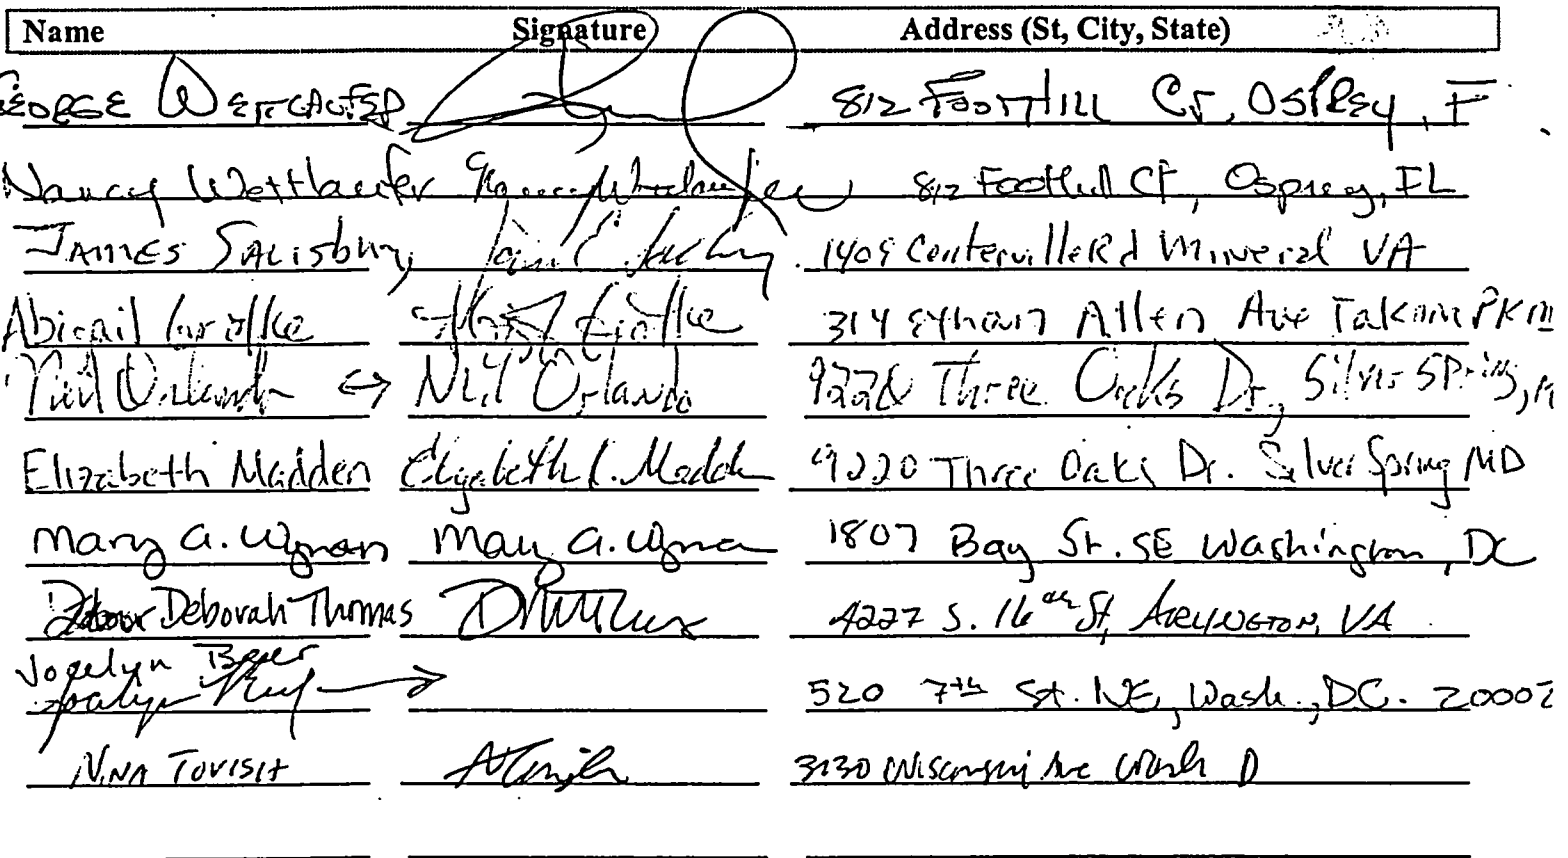 Name Signature Address (St, City, State)
EORGE WETTLAUFER 812 FOOTHILL CT, OSPREY, F
Nancy Wettlaufer Nancy Wettlaufer 812 Foothill Ct, Osprey, FL
JAMES SALISBURY, 1409 Centerville Rd Mineral VA
Abigail 314 Ethan Allen Ave Takoma PK M
Neil Orlando ↔ Neil Orlando 9220 Three Oaks Dr., Silver Spring, M
Elizabeth Madden Elizabeth L. Madden 9220 Three Oaks Dr. Silver Spring MD
Mary A. Wyman Mary A. Wyman 1807 Bay St. SE Washington, DC
Deborah Thomas 4227 S. 16th St, ARLINGTON, VA
Jocelyn Beier
Jocelyn → 520 7th St. NE, Wash., DC. 20002
NINA TOVISH 3130 Wisconsin Ave Wash D